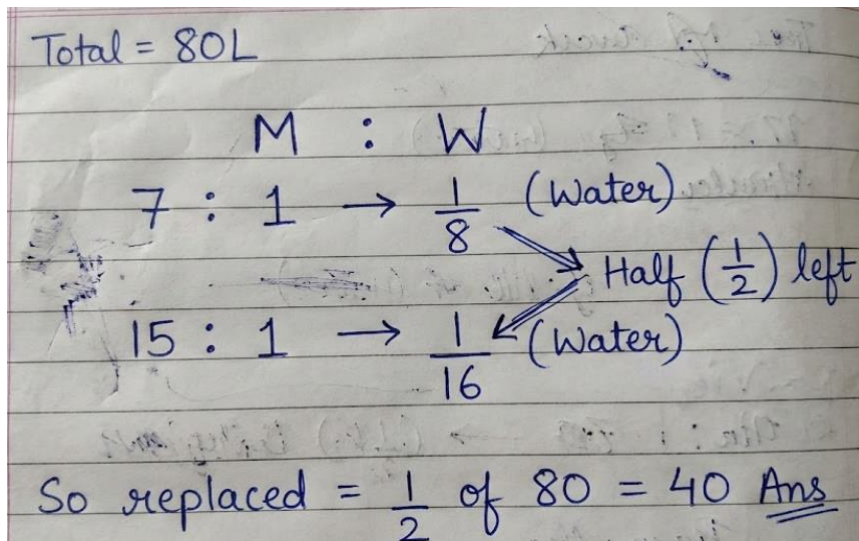 Total = 80L
M : W
7 : 1 → 1/8 (Water)
Half (1/2) left
15 : 1 → 1/16 (Water)
So replaced = 1/2 of 80 = 40 Ans